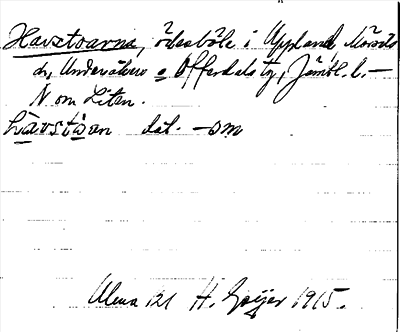 Havstoarna, ödesböle i Uppland, Mörsils
sn, Undersåkers o Offerdals tg, Jämtl. l. –
N om Liten.
hàvstòan dat. –om
Alma 121 H. Geijer 1915.